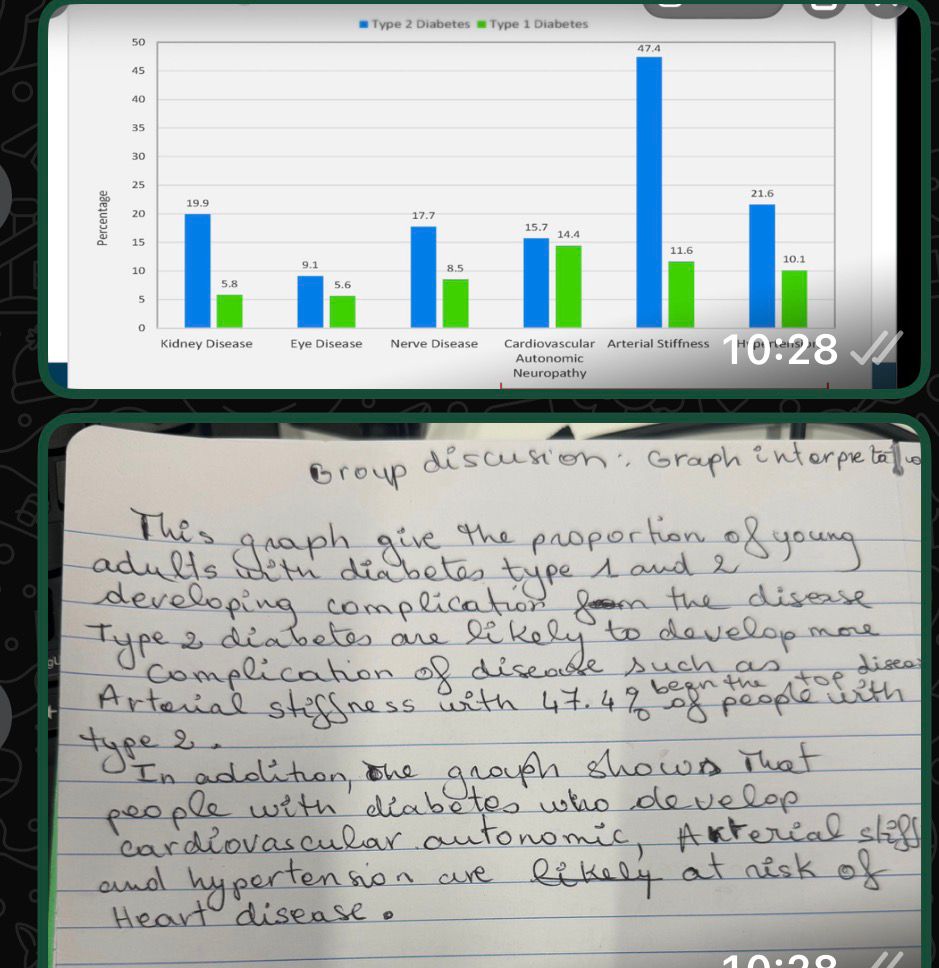 Type 2 Diabetes Type 1 Diabetes
50
45
40
35
30
25
20
15
10
5
0
Percentage
19.9 5.8 9.1 5.6 17.7 8.5 15.7 14.4 47.4 11.6 21.6 10.1
Kidney Disease Eye Disease Nerve Disease Cardiovascular Arterial Stiffness Hypertension
Autonomic
Neuropathy
10:28
Group discusion: Graph interpretatio
This graph give the proportion of young
adults with diabetes type 1 and 2
developing complication from the disease
Type 2 diabetes are likely to develop more
complication of disease such as
begn the top disea
Arterial stiffness with 47.4% of people with
type 2.
In addition, the graph shows That
people with diabetes who develop
cardiovascular autonomic, Arterial stiff
and hypertension are likely at risk of
Heart disease.
10:28